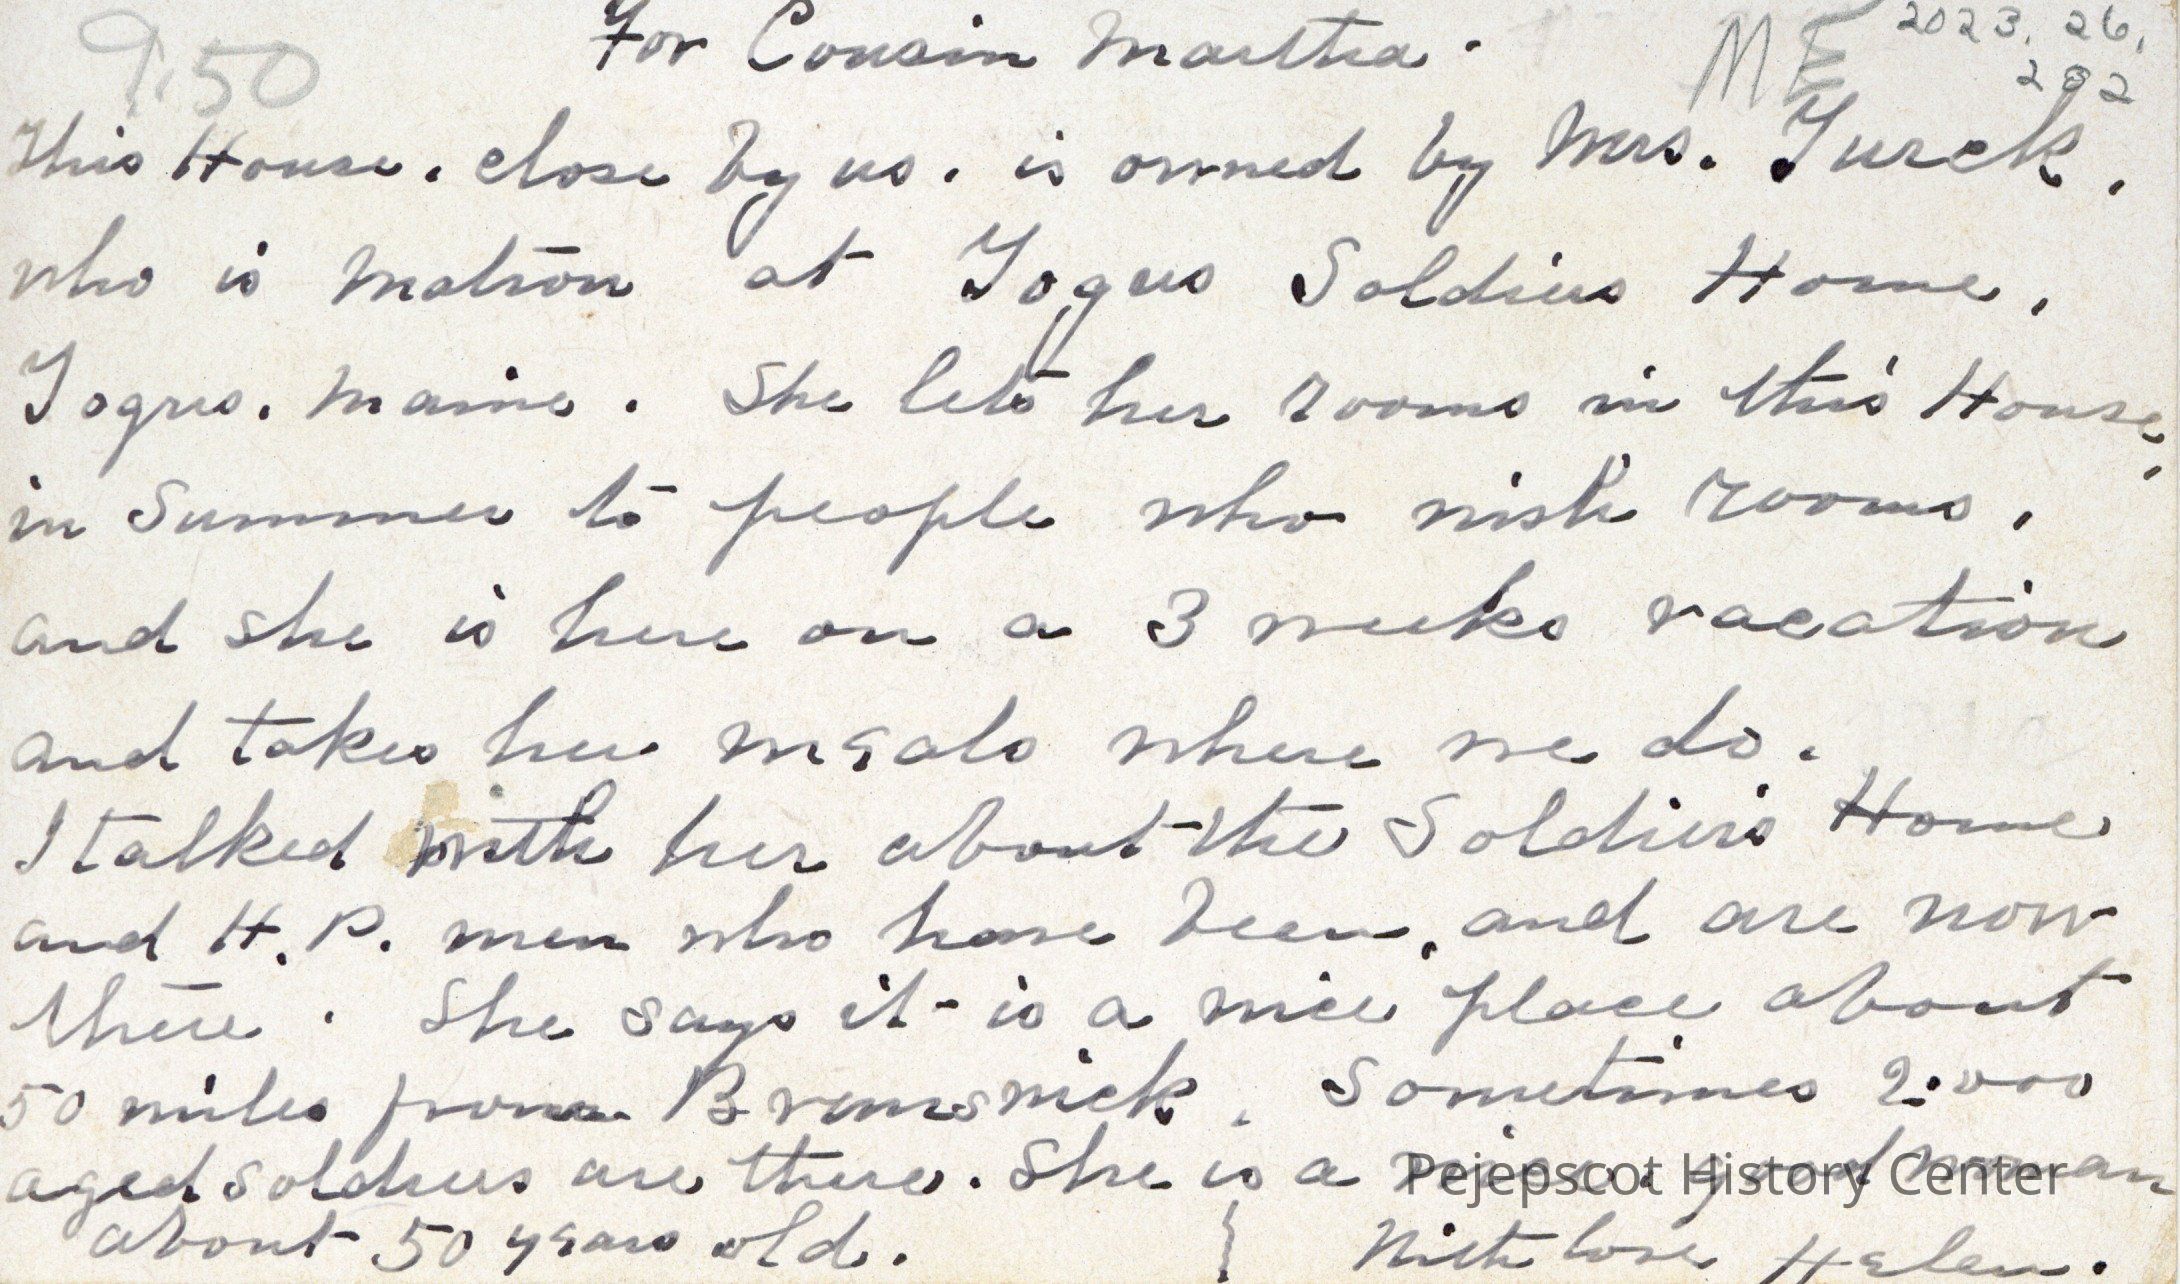 9.50
For Cousin Martha.
ME 2023.26.
282
This House. close by us. is owned by Mrs. Turck,
who is Matron at Togus Soldiers Home,
Togus. Maine. She lets her rooms in this House,
in Summer to people who wish rooms,
and she is here on a 3 weeks vacation
and takes her meals where we do.
I talked with her about the Soldiers Home
and H.P. men who have been, and are now
there. She says it is a nice place about
50 miles from Brunswick. Sometimes 2.000
aged soldiers are there. She is a good woman
about 50 years old. With love Helen.
Pejepscot History Center